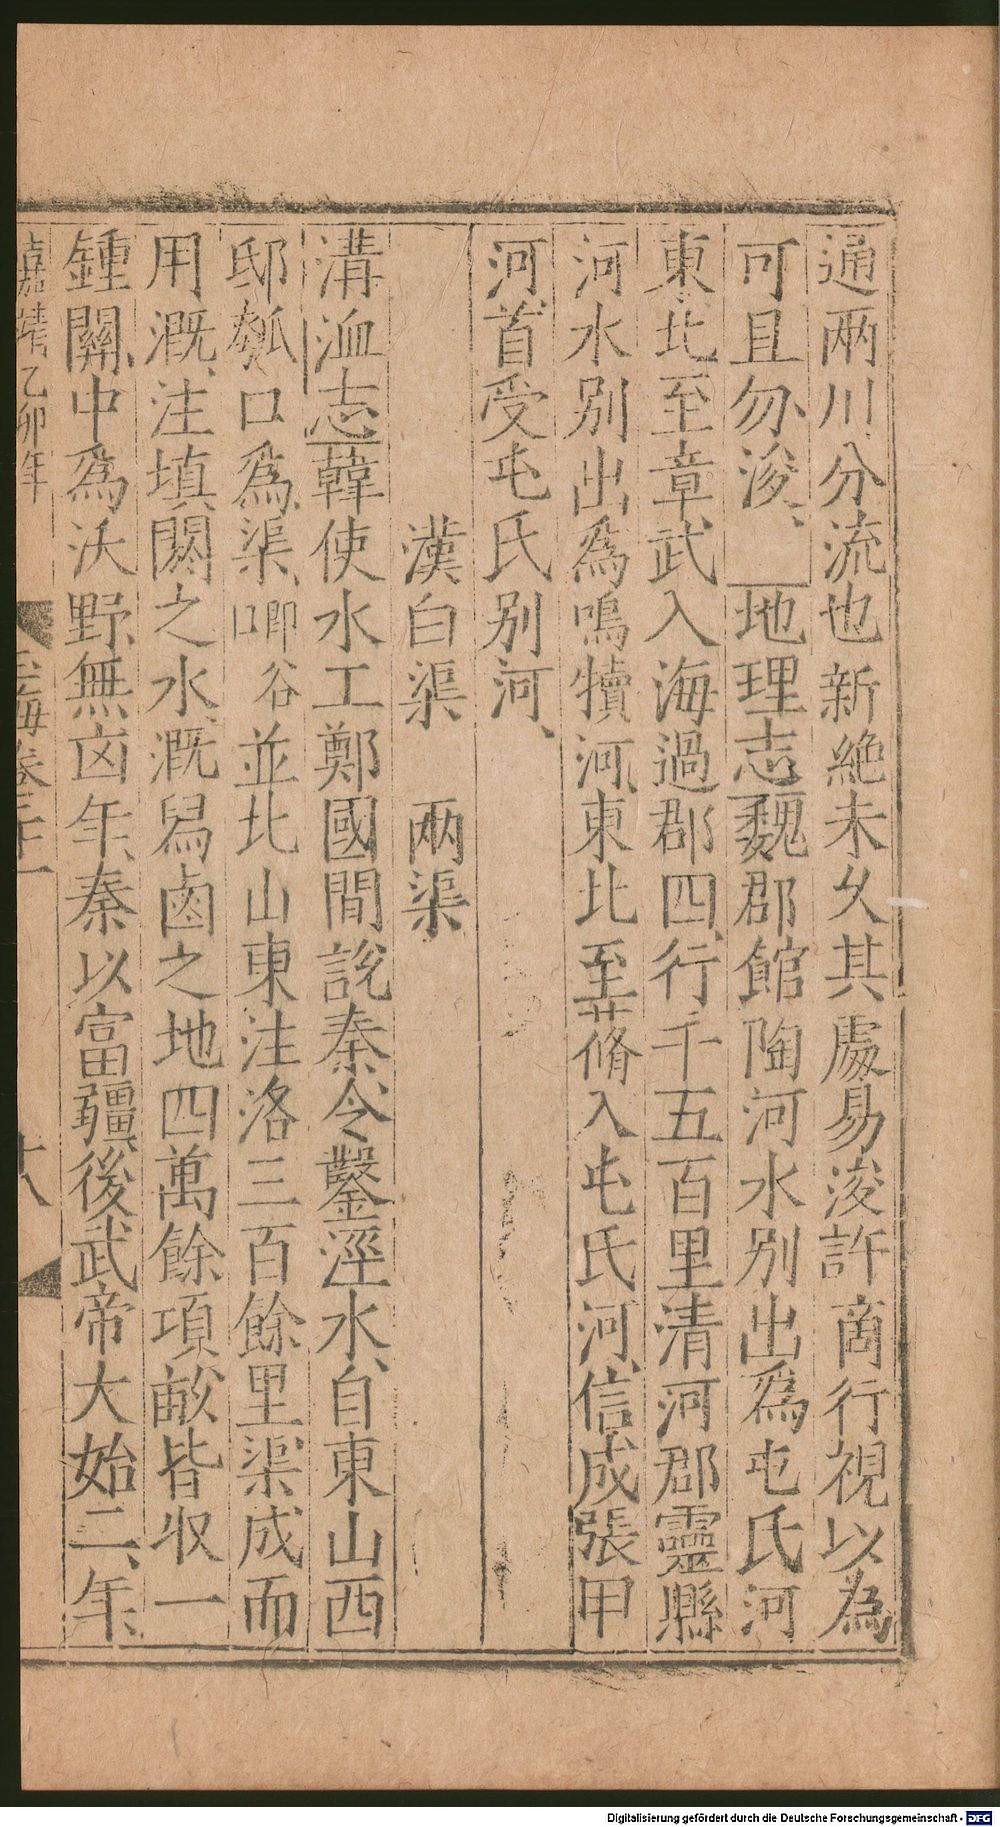 通兩川分流也新絶未久其處易浚許商行視以為
可且勿浚地理志魏郡館陶河水別出爲屯氏河
東北至章武入海過郡四行千五百里清河郡靈縣
河水別出爲鳴犢河東北至蓨入屯氏河信成張甲
河首受屯氏別河
漢白渠 兩渠
溝洫志韓使水工鄭國間說秦令鑿涇水自東山西
邸瓠口爲渠唧谷並北山東注洛三百餘里渠成而
用溉注填閼之水溉舄鹵之地四萬餘項畝皆収一
鍾關中爲沃野無凶年秦以富疆後武帝大始二年
嘉靖乙卯年 玉海卷二十一 十八
Digitalisierung gefördert durch die Deutsche Forschungsgemeinschaft - DFG